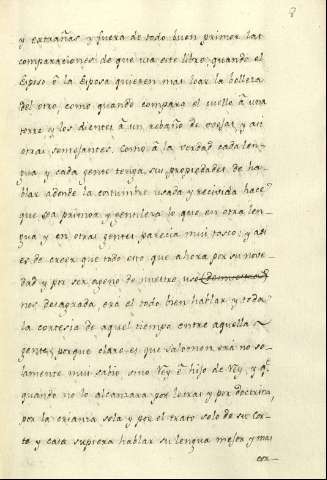 8
y extrañas, y fuera de todo buen primor las
comparaciones de que usa este libro, quando el
Esposo ò la Esposa quieren mas loar la belleza
del otro, como quando compara el cuello à una
torre y los dientes à un rebaño de ovejas, y asi
otras semejantes. Como à la verdad cada len-
gua y cada gente tenga sus propiedades de ha-
blar adonde la costumbre usada y recivida hace
que sea primor y gentileza lo que en otra len-
gua y en otras gentes parecia mui tosco; y asi
es de creer que todo esto que ahora por su nove-
dad y por ser ageno de nuestro uso
nos desagrada, era el todo bien hablar y toda
la cortesia de aquel tiempo entre aquella
gente; porque claro es que Salomon era no so-
lamente mui sabio, sino Rey è hijo de Rey, y q.e
quando no lo alcanzara por letras y por doctrina,
por la crianza sola y por el trato solo de su Cor-
te y casa supiera hablar su lengua mejor y mas
cor-